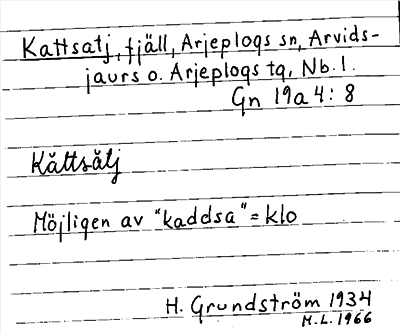 Kattsatj, fjäll, Arjeplogs sn, Arvids-
jaurs o. Arjeplogs tg, Nb. l.
Gn 19a 4: 8
Kăttsătj
Möjligen av "kaddsa" = klo
H. Grundström 1934
M.L. 1966